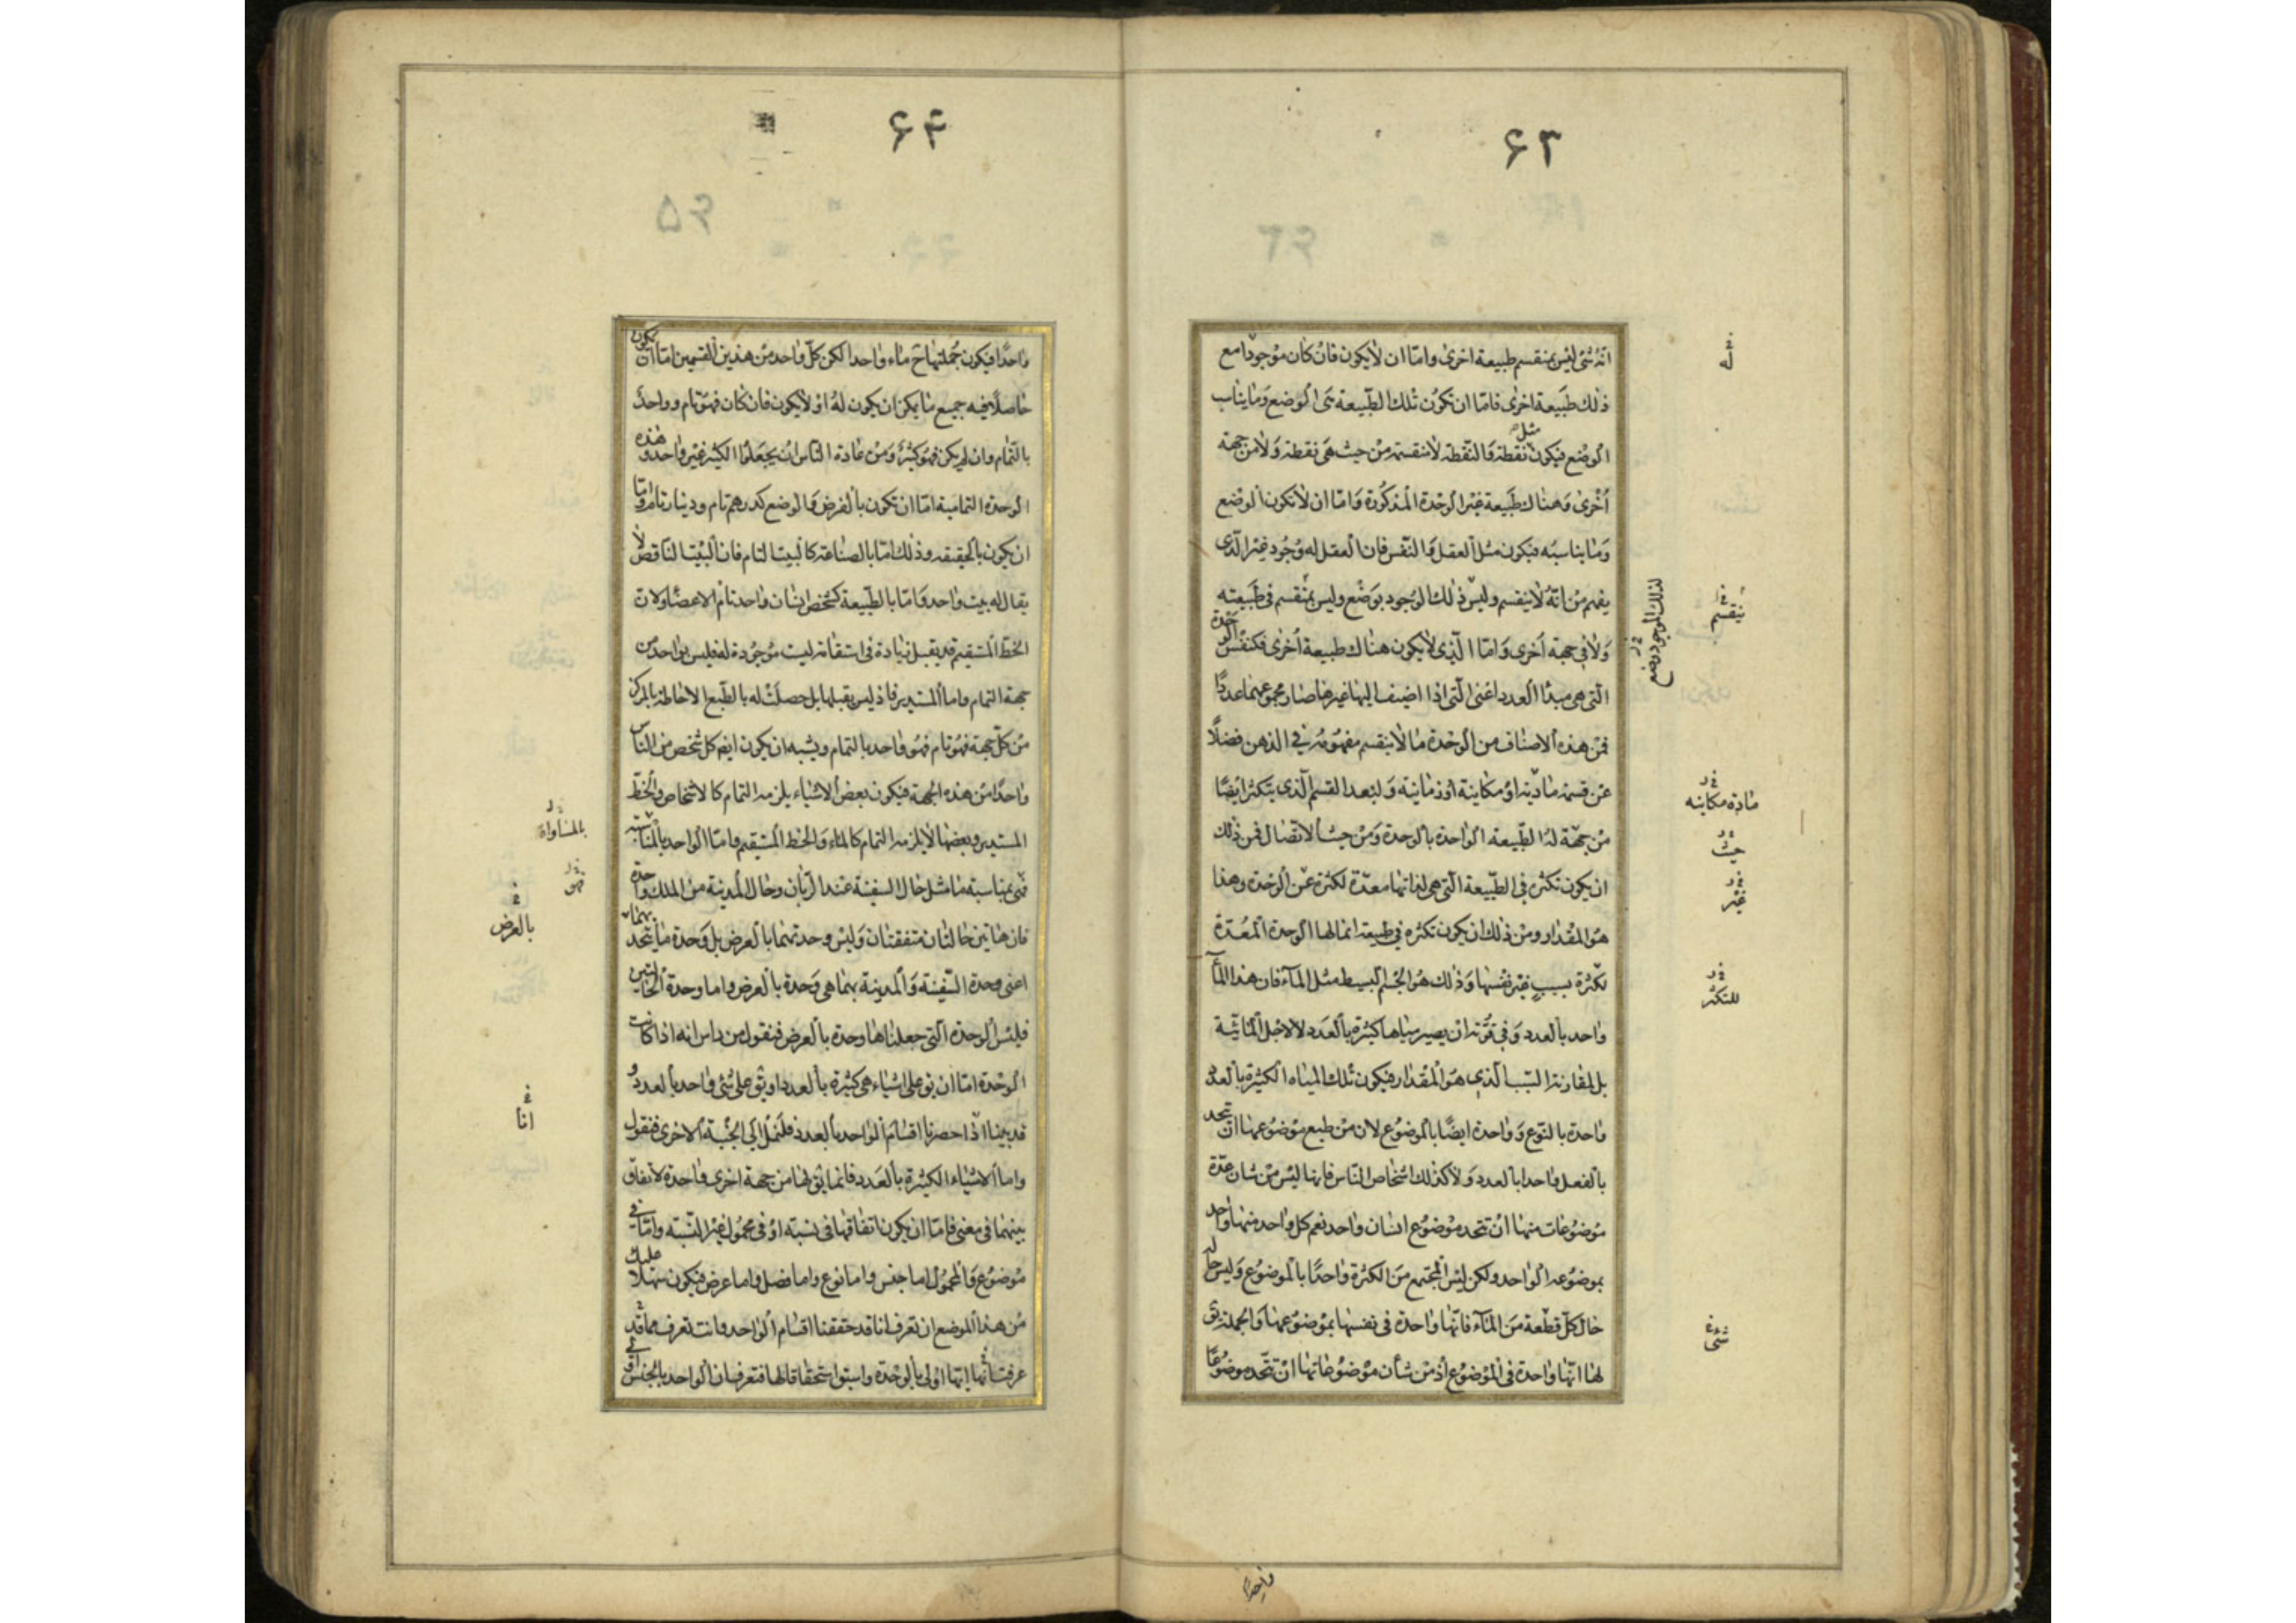 ۶۳
انّه شئ ليس بمنقسم طبيعة اخرى واما ان لا يكون فان كان موجودا مع
ذلك طبيعة اخرى فامّا ان تكون تلك الطّبيعة هى الوضع وما يناسب
مثل
الوضع فيكون نقطة والنّقطة لا منقسمة من حيث هى نقطة ولا من جهة
اُخرى وهناك طبيعة غير الوحدة المذكورة وامّا ان لا تكون الوضع
وما يناسبه فيكون مثل العقل والنّفس فان العقل له وجود غير الّذى
يفهم من انّه لا ينقسم وليس ذلك الوجود بوضع وليس بمنقسم فى طبيعته
ولا فى جهة اخرى وامّا الّذى لا يكون هناك طبيعة اُخرى فكنفس الوحدة
الّتى هى مبدأ العدد اعنى الّتى اذا اضيف اليها غيرها صار مجموعهما عددًا
فمن هذه الاصناف من الوحدة ما لا ينقسم مفهومه فى الذهن فضلًا
عن قسمة ماديّة او مكانية او زمانية ولنعد القسم الّذى يتكثر ايضًا
من جهة له الطّبيعة الواحدة بالوحدة ومن حيث الاتّصال فمن ذلك
ان يكون تكثره فى الطّبيعة الّتى هى لذاتها معدّة لكثرة عن الوحدة وهذا
هو المقدار ومن ذلك ان يكون تكثره فى طبيعة انما لها الوحدة المُعدّة
لكثرة بسببٍ غير نفسها وذلك هو الجسم البسيط مثل المآء فان هذا المآء
واحد بالعدد وفى قوّته ان يصير مياها كثيرة بالعدد لا لاجل المائيّة
بل لمقارنة السّبب الّذى هو المقدار فيكون تلك المياه الكثيرة بالعدد
واحدة بالنّوع وواحدة ايضًا بالموضوع لان من طبع موضوعها ان تتحد
بالفعل واحدا بالعدد ولا كذلك اشخاص النّاس فانها ليس من شان عدّة
موضوعات منها ان تتحد موضوع انسان واحد نعم كل واحد منها واحد
بموضوعه الواحد ولكن ليس المجتمع من الكثرة واحدًا بالموضوع وليس حاله
حال كلّ قطعة من المآء فانّها واحدة فى نفسها بموضوعها والجملة يق
لها انّها واحدة فى الموضوع اذ من شأن موضوعاتها ان تتّحد موضوعًا
له
ينقسم
لذلك الموجود وضع
مادة مكانيه
حيث
غير
للتكثر
شئ
واحدًا
۶۴
واحدًا فيكون جملتها ح ماء واحدا لكن كلّ واحد من هذين القسمين امّا ان يكون
حاصلًا فيه جميع ما يمكن ان يكون له او لا يكون فان كان فهو تام وواحدٌ
بالتّمام وان لم يكن فهو كثيرٌ ومن عادة النّاس ان يجعلوا الكثير غير واحد وهذه
الوحدة التمامية امّا ان تكون بالفرض والوضع كدرهم تام ودينار تام وامّا
ان يكون بالحقيقه وذلك امّا بالصناعة كالبيت التام فان البيت النّاقص لا
يقال له بيت واحد وامّا بالطّبيعة كشخص انسان واحد تام الاعضاء ولان
الخطّ المستقيم قد يقبل زيادة فى استقامة ليست موجودة له فليس بواحد من
جهة التمام واما المستدير فاذ ليس يقبلها بل حصلت له بالطّبع الاحاطة بالمركز
من كلّ جهة فهو تام فهو واحد بالتمام ويشبه ان يكون ايضا كل شخص من النّاس
واحدًا من هذه الجهة فيكون بعض الاشياء يلزمه التمام كالاشخاص والخطّ
المستدير وبعضها لا يلزمه التمام كالماء والخط المستقيم وامّا الواحد بالمناسبة
فهى بمناسبة ما مثل حال السفينة عند الرّبان وحال المدينة من الملك واحدة
فان هاتين حالتان متفقتان وليس وحدتهما بالعرض بل وحدة ما يتحد بهما
اعنى وحدة السّفينة والمدينة بهما هى وحدة بالعرض واما وحدة الحالتين
فليس الوحدة الّتى جعلناها وحدة بالعرض فنقول من راس انه اذا كانت
الوحدة امّا ان يق على اشياء هى كثيرة بالعدد او يق على شئ واحد بالعدد و
قد بينا انّا حصرنا اقسام الواحد بالعدد فلنمل الى الحيثيّة الاخرى فنقول
واما الاشياء الكثيرة بالعدد فانما يق لها من جهة اخرى واحدة لاتّفاق
بينهما فى معنى فامّا ان يكون اتفاقها فى نسبة او فى محمول غير النّسبة وامّا فى
موضوع والمحمول اما جنس واما نوع واما فصل واما عرض فيكون سهلا عليك
من هذا الموضع ان تعرف انا قد حققنا اقسام الواحد وانت تعرف مما قد
عرفت انّها ايّها اولى بالوحدة واسبق استحقاقا لها فتعرف ان الواحد بالجنس
بالمساواة
فهو
بالعرض
انّا